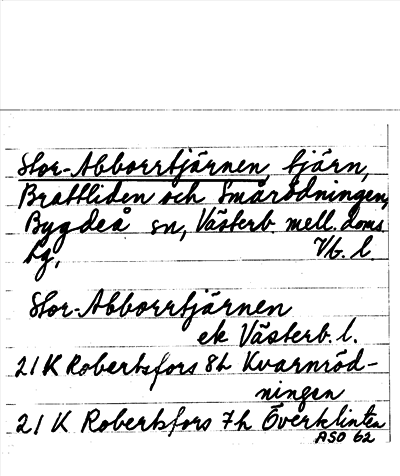 Stor-Abborrtjärnen, tjärn,
Brattliden och Smårödningen,
Bygdeå sn, Västerb. mell. doms
sg, Vb. l.
Stor-Abborrtjärnen
ek Västerb. l.
21K Robertsfors 8h Kvarnröd-
ningen
21 K Robertsfors 7h Överklinten
ASO 62